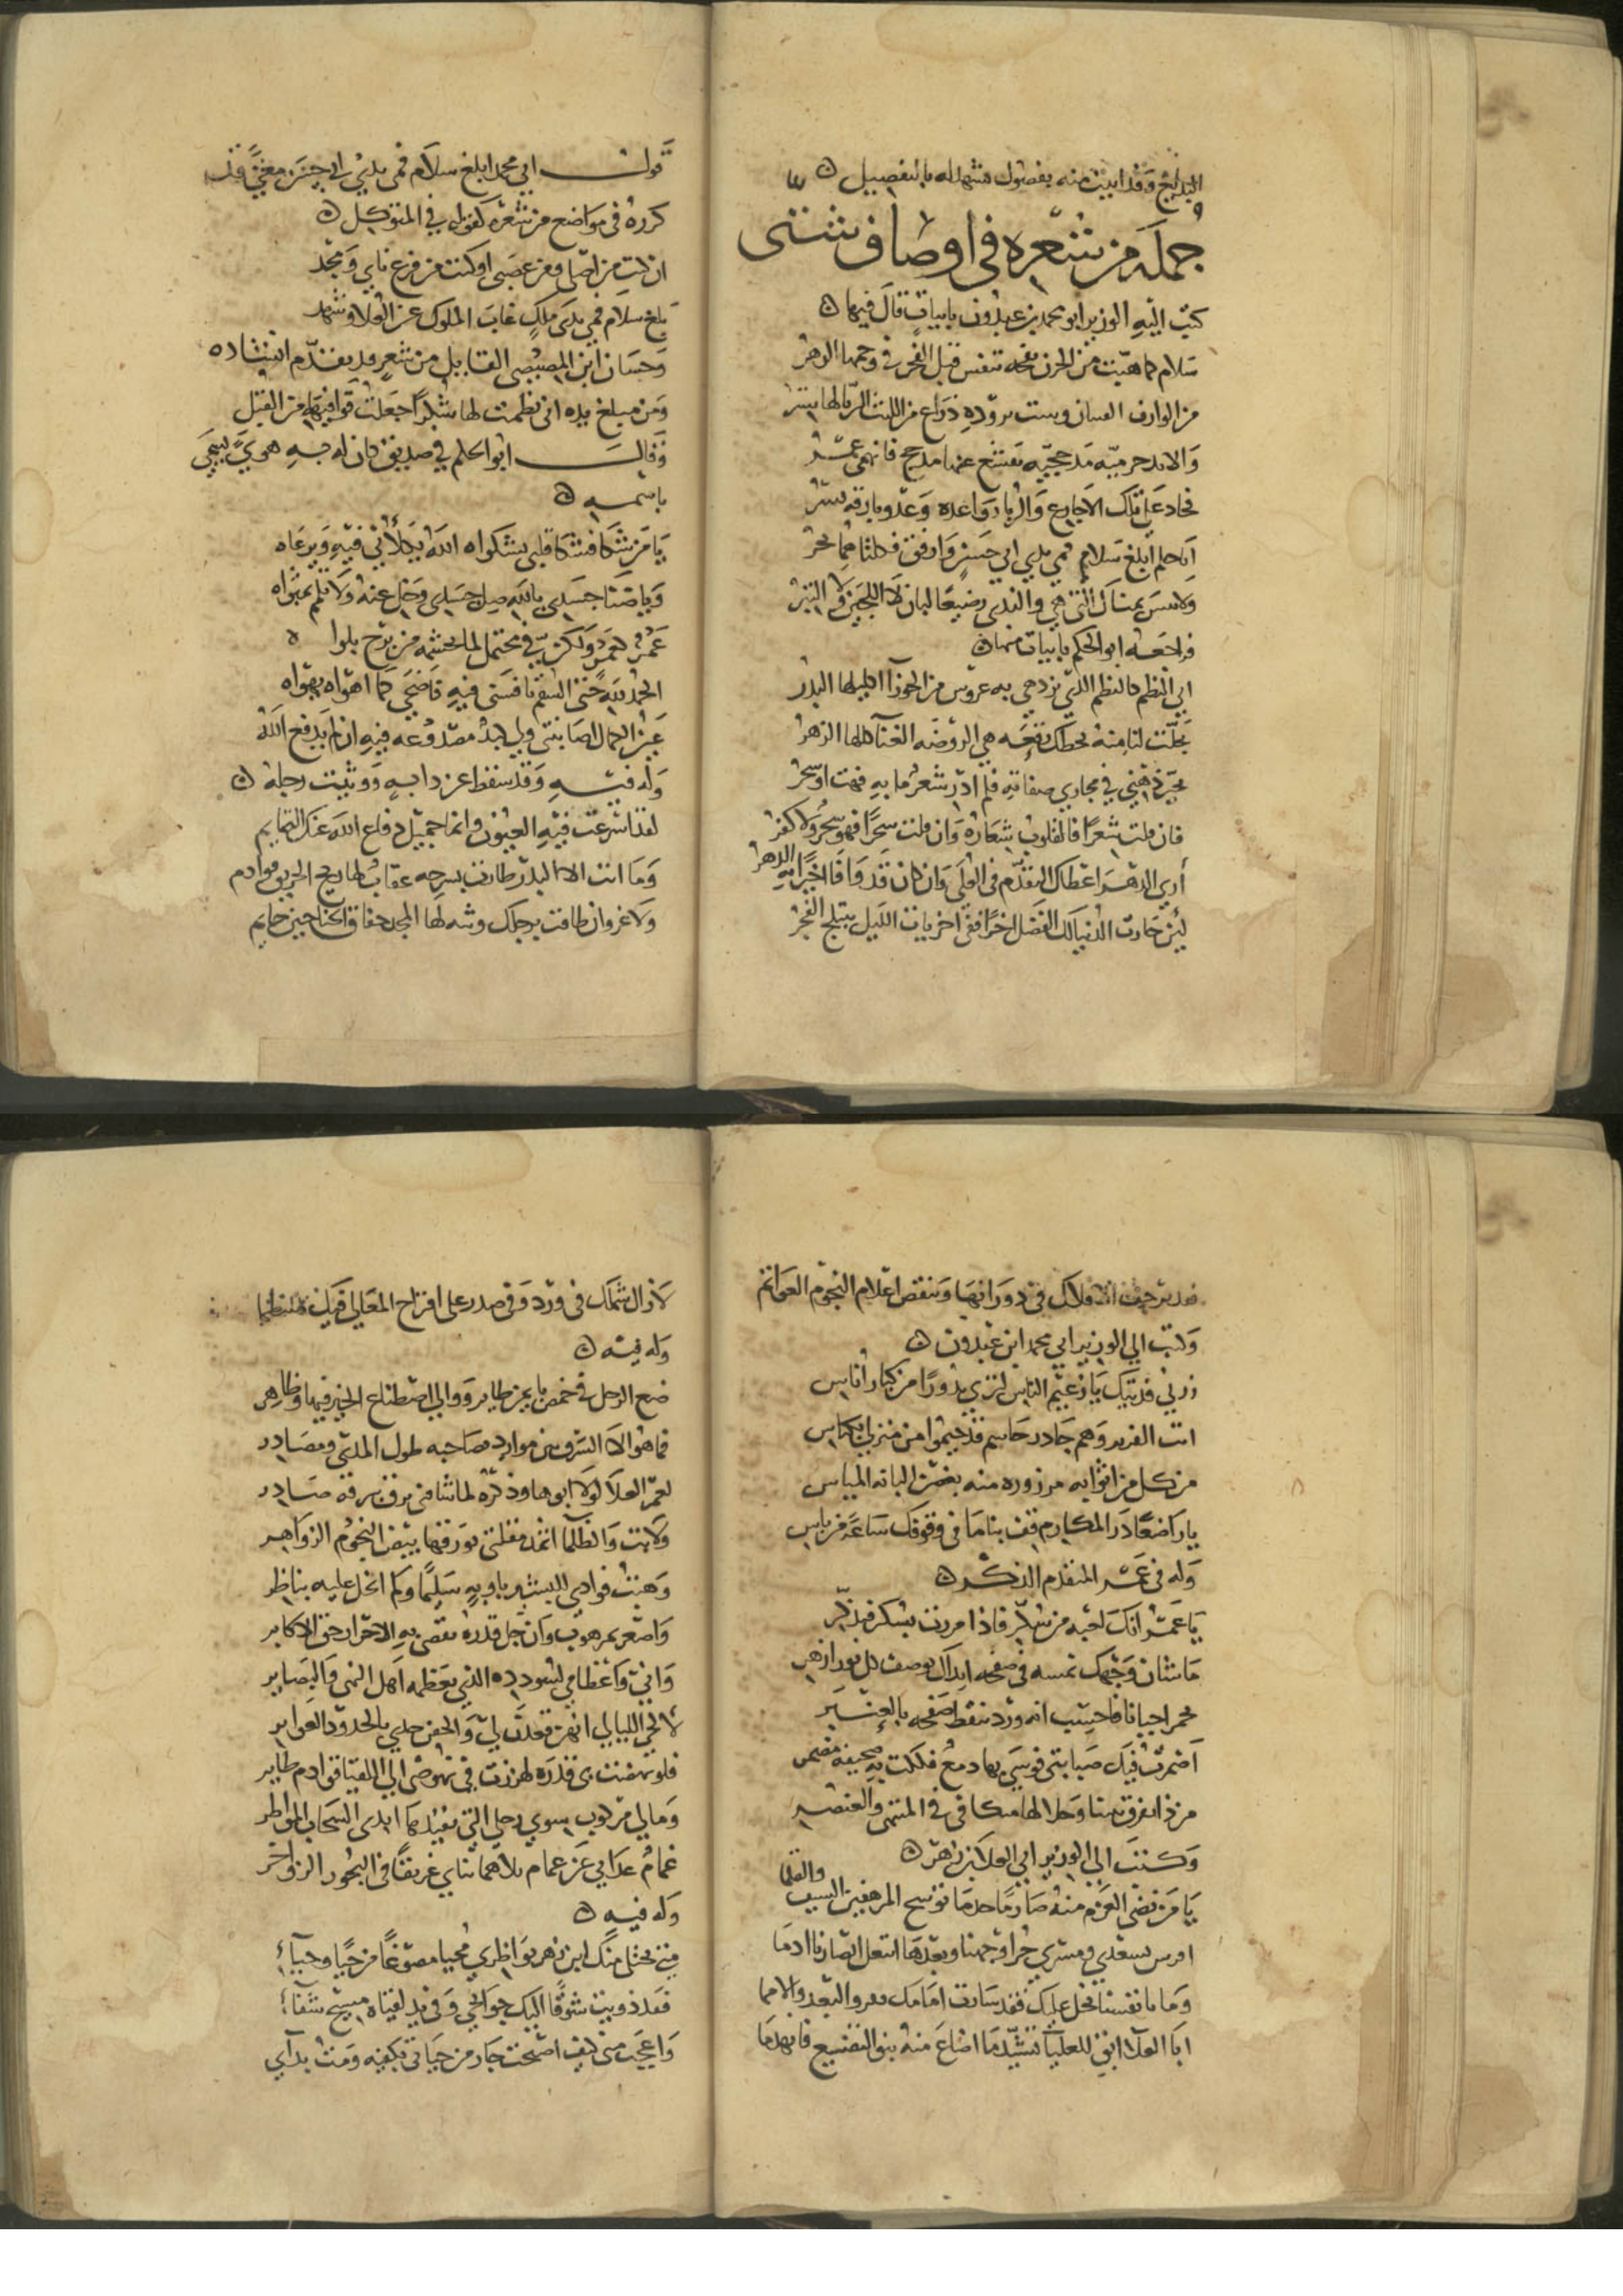 البديع وقد اثبت منه بفصول تشهد له بالتفصيل
جملة من شعره في اوصاف شتى
كتب اليه الوزير ابو محمد بن عبدون بابيات قال فيها
سلام كما هبت من الحزن نفحة تنفس قبل الفجر في وجهها الزهر
من الوارف ذراع من الليث الثريا لها شبر
والا يد مذحجية تقشع عنها مذحج فانهمى عمر
فجاد على تلك الاجارع والربا رواعده وبارقه بشر
ابا حكم ابلغ سلام فمي يدي ابي حسن وارفق فكلتاهما بحر
ولا تنس يمناك التي هي والندى رضيعا لبان لا اللجين ولا التبر
فراجعه ابو الحكم بابيات منها
ابى النظم كالنظم الذي تزدهي به عروس من الجوزاء اكليلها البدر
تجلت لنا منه بخطك نفحة هي الروضة الغناء كللها الزهر
تحير ذهني في مجاري صفاته فلم ادر شعر ما به فهت او سحر
فان قلت شعرا فالقلوب شعاره وان قلت سحرا فهو سحر ولا كفر
أرى الدهر اعطاك التقدم في العلى وان كان قد وافا اخيرا به الدهر
لئن حازت الدنيا لك الفضل اخرا ففي اخريات الليل يبتلج الفجر
قول ابي محمد ابلغ سلام فمي يدي ابي حسن معنى قد
كرره في مواضع من شعره كقوله في المتوكل
ان كنت من اصلي ومن عصبي او كنت من فرعي ومجد
بلغ سلام فمي يدي ملك غاب الملوك عن العلا وشهد
وحسان ابن المصيصي القايل من شعر قد تقدم انشاده
ومن مبلغ يده اني نظمت لها شكرا جعلت قوافيها من القبل
وقال ابو الحكم في صديق كان له به هوى يسمى
باسمه
يا من شكا فشكا قلبي بشكواه الله يكلأني فيه ويرعاه
ويا ضنا جسدي بالله صل جسدي وخل عنه ولا تلمم بمثواه
عمرو لعمرو ولكن في محتمل لما تحشمه من برح بلوا ه
الحمد لله حتى السقم نافسني فيه فاضحى كما اهواه يهواه
عين الجمال اصابتني ولي كبد مصدوعه فيه ان لم يدفع الله
وله فيه وقد سقط عن دابه وو ثيت رجله
لقد اشرعت فيه العيون وانما جميل دفاع الله عنك التمايم
وما انت الا البدر طارت بسرجه عقاب لها ريح البريق قوادم
ولا غرو ان طافت برجلك وثه لها المجد خفاق الجناحين حايم
قد ترجف الافلاك في دورانها وتنقض اعلام النجوم العواتم
وكتب الى الوزير ابي محمد ابن عبدون
زرني فديتك يا زعيم الناس لترى بدورا من كبار اناس
انت الفريد وهم جاذر جاسم قد خيموا من منزلي بكناس
من كل من اثوابه مزروره منه بغصن البانه المياس
يا راضعا در المكارم قف بنا ما في وقوفك ساعة من باس
وله في عمر المتقدم الذكر
يا عمر انك لعبه من سكر فاذا مررت بسكر فتذكر
ما شان وجهك نمسه في صفحه ابدا لك بوصف كل بدر ازهر
محمر احيانا فاحسب انه ورد تنقط صفحه بالعنبر
اضمرت فيك صبابتي فوشى بها دمع فلكت به صحيفه مضمر
من ذا يفرق بيننا وحلالها متكافئ في المنتهى والعنصر
وكتب الى الوزير ابي العلا بن زهر
يا من نضى العزم منه صارما حدما توسع المرهفين السيف والقلما
ابا العلا ابتني للعليا تشيد ما اضاع منه بنو التضييع فانهدما
لا زال شملك في ورد وفي صدر على اقتراح المعالي فيك منتظما
وله فيه
ضع الرحل في حمص بايمن طاير ووالى اصطناع الخير فيها وظاهر
فما هو الا الشرف بين موارد مصاحبه طول المدى ومصادر
لعمر العلا لولا ابوها وذكره لما شاقني برق سرقه صادر
ولا بت والظلما اثمد مقلتي تورقها بيض النجوم الزواهر
وهبت فوادي للبشير باوبه سليما وكم انحل عليه بناظر
واصغر بمرهوب وان جل قدره تقضى به الاحرار حق الاكابر
واني واعظامي لسودده الذي يعظمه اهل النهى والبصاير
لالحي الليالي انهن قعدن بي والحفن جدي بالجدود العواثر
فلو نهضت بي قدره لهززت في نهوضي الى اللقيا قوادم طاير
ومالي مركوب سوى رجلي التي تقيدها ايدي السحاب المواطر
غمام عدا بي عن غمام يلاهما بناي غريقا في البحور الزواخر
وله فيه
متى تجتلي منك ابن زهر نواظري محيا مصوغا من حيا وحياء
فقد ذوبت شوقا اليك جوانحي وفي يد لقياه مسيح شفاء
واعجب مني كيف اصبحت جار من حياتي بكفيه ومت بداي